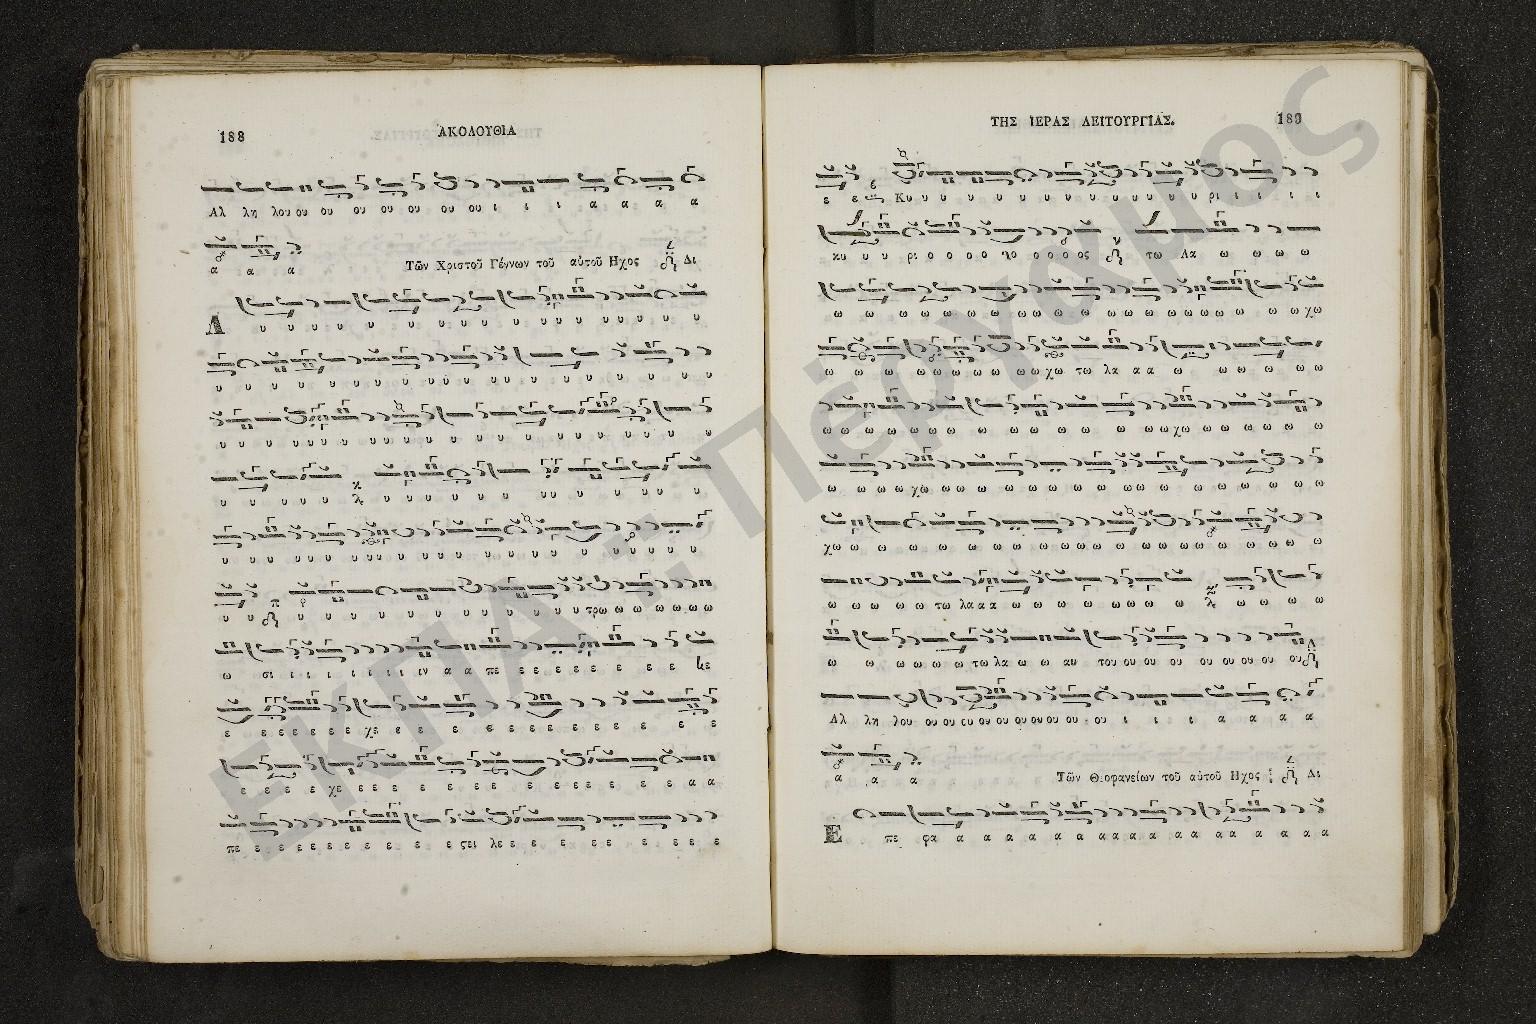 188
ΑΚΟΛΟΥΘΙΑ
Αλ λη λου ου ου ου ου ου ου ου ι ι ι α α α α
α α α
Τῶν Χριστοῦ Γέννων τοῦ αὐτοῦ Ηχος Δι
Λ υ υ υ υ υ υ υ υ υ υ υ υ υ υ υ υ
υ υ υ υ υ υ υ υ υ υ υ υ υ υ υ υ
υ υ υ υ υ υ υ υ υ υ υ υ υ υ υ υ υ υ
υ υ υ υ υ υ υ υ υ υ υ υ υ υ υ υ
υ υ υ υ υ υ υ υ υ υ υ υ υ υ υ υ υ υ
υ υ υ υ υ υ υ υ υ υ υ υ υ τρω ω ω ω ω ω ω
ω σι ι ι ι ι ι ι ιν α α πε ε ε ε ε ε ε ε ε ε
ε ε ε ε ε ε χε ε ε ε ε ε ε ε ε ε ε ε ε ε
ε ε ε ε χε ε ε ε ε ε ε ε ε ε ε ε ε ε α α
πε ε ε ε ε ε ε ε ε ε ε λε ε ε ε ε ε ε ε ε
ΤΗΣ ΙΕΡΑΣ ΛΕΙΤΟΥΡΓΙΑΣ.
189
ε ε Κυ υ υ υ υ υ υ υ υ υ υ υ υ ρι ι ι ι ι
κυ υ υ ρι ο ο ο ο ο ο ο ος τω Λα ω ω ω ω
ω ω ω ω ω ω ω ω ω ω ω ω ω ω ω ω ω ω χω
ω ω ω ω ω ω ω ω ω ω χω τω λα α α ω ω ω ω ω ω
ω ω ω ω ω ω ω ω ω ω ω ω ω ω χω ω ω ω ω ω ω
ω ω ω ω χω ω ω ω ω ω ω ω ω ω ω ω ω ω ω ω ω ω
χω ω ω ω ω ω ω ω ω ω ω ω ω ω ω ω ω ω ω ω ω ω
ω ω ω ω ω τω λα α α ω ω ω ω ω ω ω ω ω ω ω ω
ω ω ω ω ω ω τω λα ω ω αυ του ου ου ου ου ου ου ου ου
Αλ λη λου ου ου ου ου ου ου ου ου ου ου ι ι ι α α α α
α α α
Τῶν Θεοφανείων τοῦ αὐτοῦ Ηχος Δι
Ε πε φα α α α α α α α α α α α α α α α α α
ΕΚΠΑ - Πέργαμος